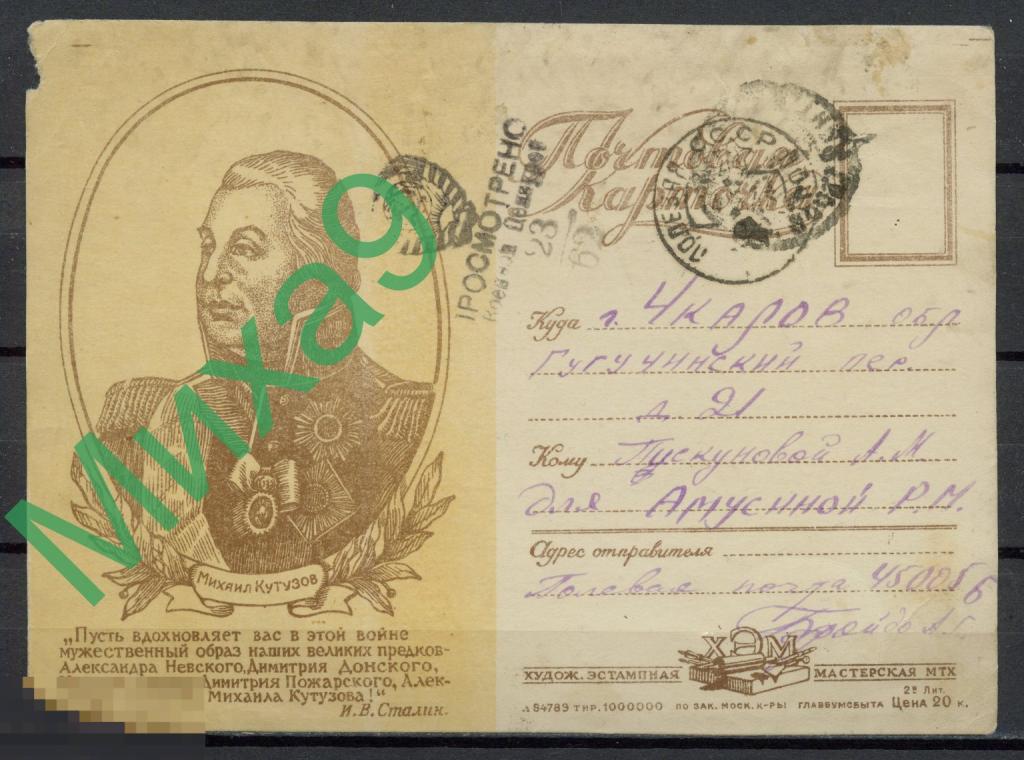 Миха9
МИХАИЛ КУТУЗОВ
„Пусть вдохновляет вас в этой войне
мужественный образ наших великих предков-
Александра Невского, Димитрия Донского,
Димитрия Пожарского, Алек-
Михаила Кутузова!"
И.В.Сталин.
ПРОСМОТРЕНО
Военной Цензурой
23
62
Почтовая
Карточка
СССР
Куда г. Чкалов обл
пер.
д. 21
Кому Пускуновой А.М.
для Амусиной Р.М.
Адрес отправителя
Полевая почта 45005б
ХЭМ
ХУДОЖ. ЭСТАМПНАЯ МАСТЕРСКАЯ МТХ
Л84789 ТИР. 1000000 ПО ЗАК. МОСК. К-РЫ ГЛАВБУМСБЫТА Цена 20 к.